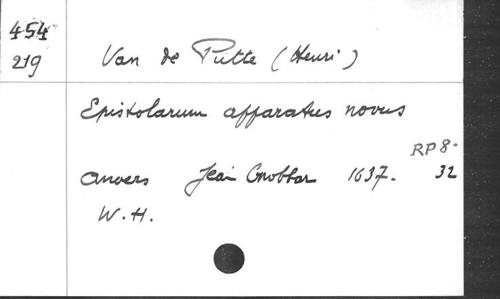 454
219
Van de Putte (Henri)
Epistolarum apparatus novus
RP 8.
Anvers Jean Cnobbar 1637. 32
W.H.